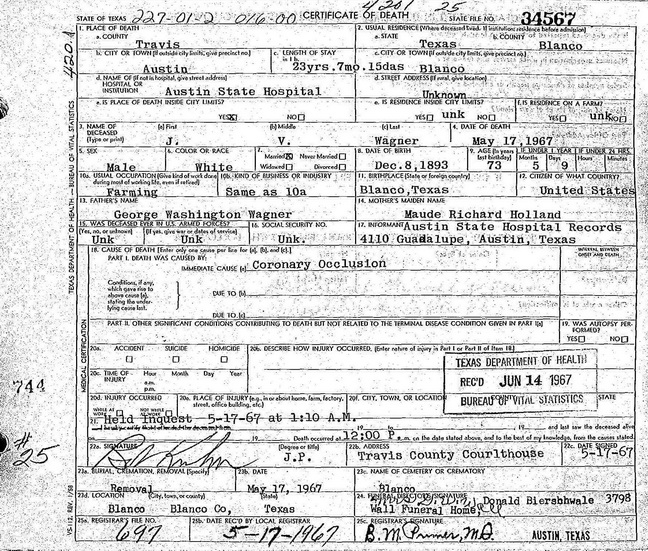 STATE OF TEXAS 227-01-2 016-00 CERTIFICATE OF DEATH 4201 25 STATE FILE NO. 34567
1. PLACE OF DEATH
a. COUNTY Travis
2. USUAL RESIDENCE (Where deceased lived. If institution: residence before admission)
a. STATE Texas b. COUNTY Blanco
b. CITY OR TOWN (If outside city limits, give precinct no.) Austin
c. LENGTH OF STAY in 1b 23yrs.7mo.15das
c. CITY OR TOWN (If outside city limits, give precinct no.) Blanco
d. NAME OF (If not in hospital, give street address) HOSPITAL OR INSTITUTION Austin State Hospital
d. STREET ADDRESS (If rural, give location) Unknown
e. IS PLACE OF DEATH INSIDE CITY LIMITS? YES X NO
e. IS RESIDENCE INSIDE CITY LIMITS? YES unk NO
f. IS RESIDENCE ON A FARM? YES unk NO
3. NAME OF DECEASED (Type or print)
(a) First J. (b) Middle V. (c) Last Wagner
4. DATE OF DEATH May 17,1967
5. SEX Male
6. COLOR OR RACE White
7. Married X Never Married Widowed Divorced
8. DATE OF BIRTH Dec.8,1893
9. AGE (In years last birthday) 73
IF UNDER 1 YEAR Months 5 Days 9
IF UNDER 24 HRS. Hours Minutes
10a. USUAL OCCUPATION (Give kind of work done during most of working life, even if retired) Farming
10b. KIND OF BUSINESS OR INDUSTRY Same as 10a
11. BIRTHPLACE (State or foreign country) Blanco,Texas
12. CITIZEN OF WHAT COUNTRY? United States
13. FATHER'S NAME George Washington Wagner
14. MOTHER'S MAIDEN NAME Maude Richard Holland
15. WAS DECEASED EVER IN U.S. ARMED FORCES?
(Yes, no, or unknown) Unk (If yes, give war or dates of service) Unk
16. SOCIAL SECURITY NO. Unk.
17. INFORMANT Austin State Hospital Records
4110 Guadalupe, Austin, Texas
18. CAUSE OF DEATH [Enter only one cause per line for (a), (b), and (c).]
INTERVAL BETWEEN ONSET AND DEATH
PART I. DEATH WAS CAUSED BY:
IMMEDIATE CAUSE (a) Coronary Occlusion
Conditions, if any, which gave rise to above cause (a), stating the underlying cause last.
DUE TO (b)
DUE TO (c)
PART II. OTHER SIGNIFICANT CONDITIONS CONTRIBUTING TO DEATH BUT NOT RELATED TO THE TERMINAL DISEASE CONDITION GIVEN IN PART I(a)
19. WAS AUTOPSY PERFORMED? YES NO
20a. ACCIDENT SUICIDE HOMICIDE
20b. DESCRIBE HOW INJURY OCCURRED. (Enter nature of injury in Part I or Part II of Item 18.)
20c. TIME OF INJURY Hour a.m. p.m. Month Day Year
TEXAS DEPARTMENT OF HEALTH
REC'D JUN 14 1967
BUREAU OF VITAL STATISTICS
20d. INJURY OCCURRED WHILE AT WORK NOT WHILE AT WORK
20e. PLACE OF INJURY (e.g., in or about home, farm, factory, street, office building, etc.)
20f. CITY, TOWN, OR LOCATION COUNTY STATE
21. Held Inquest 5-17-67 at 1:10 A.M.
19 and last saw the deceased alive
19 Death occurred at 12:00 P m. on the date stated above, and to the best of my knowledge, from the causes stated.
22a. SIGNATURE (Degree or title) J.P.
22b. ADDRESS Travis County Courlthouse
22c. DATE SIGNED 5-17-67
23a. BURIAL, CREMATION, REMOVAL (Specify) Removal
23b. DATE May 17, 1967
23c. NAME OF CEMETERY OR CREMATORY Blanco
23d. LOCATION (City, town, or county) (State) Blanco Blanco Co, Texas
24. FUNERAL DIRECTOR'S SIGNATURE Donald Biershwale 3798
Wall Funeral Home
25a. REGISTRAR'S FILE NO. 697
25b. DATE REC'D BY LOCAL REGISTRAR 5-17-1967
25c. REGISTRAR'S SIGNATURE B. M. Primer, M.D. AUSTIN, TEXAS
4201
TEXAS DEPARTMENT OF HEALTH — BUREAU OF VITAL STATISTICS
MEDICAL CERTIFICATION
744
#25